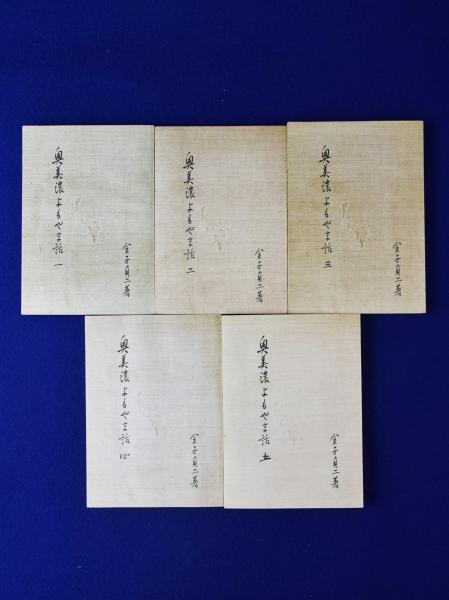 奥美濃よもやま話 一
金子貞二著
奥美濃よもやま話 二
金子貞二著
奥美濃よもやま話 三
金子貞二著
奥美濃よもやま話 四
金子貞二著
奥美濃よもやま話 五
金子貞二著